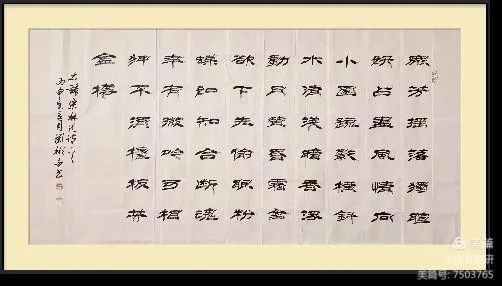 眾芳搖落獨暄
妍占盡風情向
小園疏影橫斜
水清淺暗香浮
動月黃昏霜禽
欲下先偷眼粉
蝶如知合斷魂
幸有微吟可相
狎不須檀板共
金樽
宋林逋詩
丙申
美篇
美篇号: 7503765